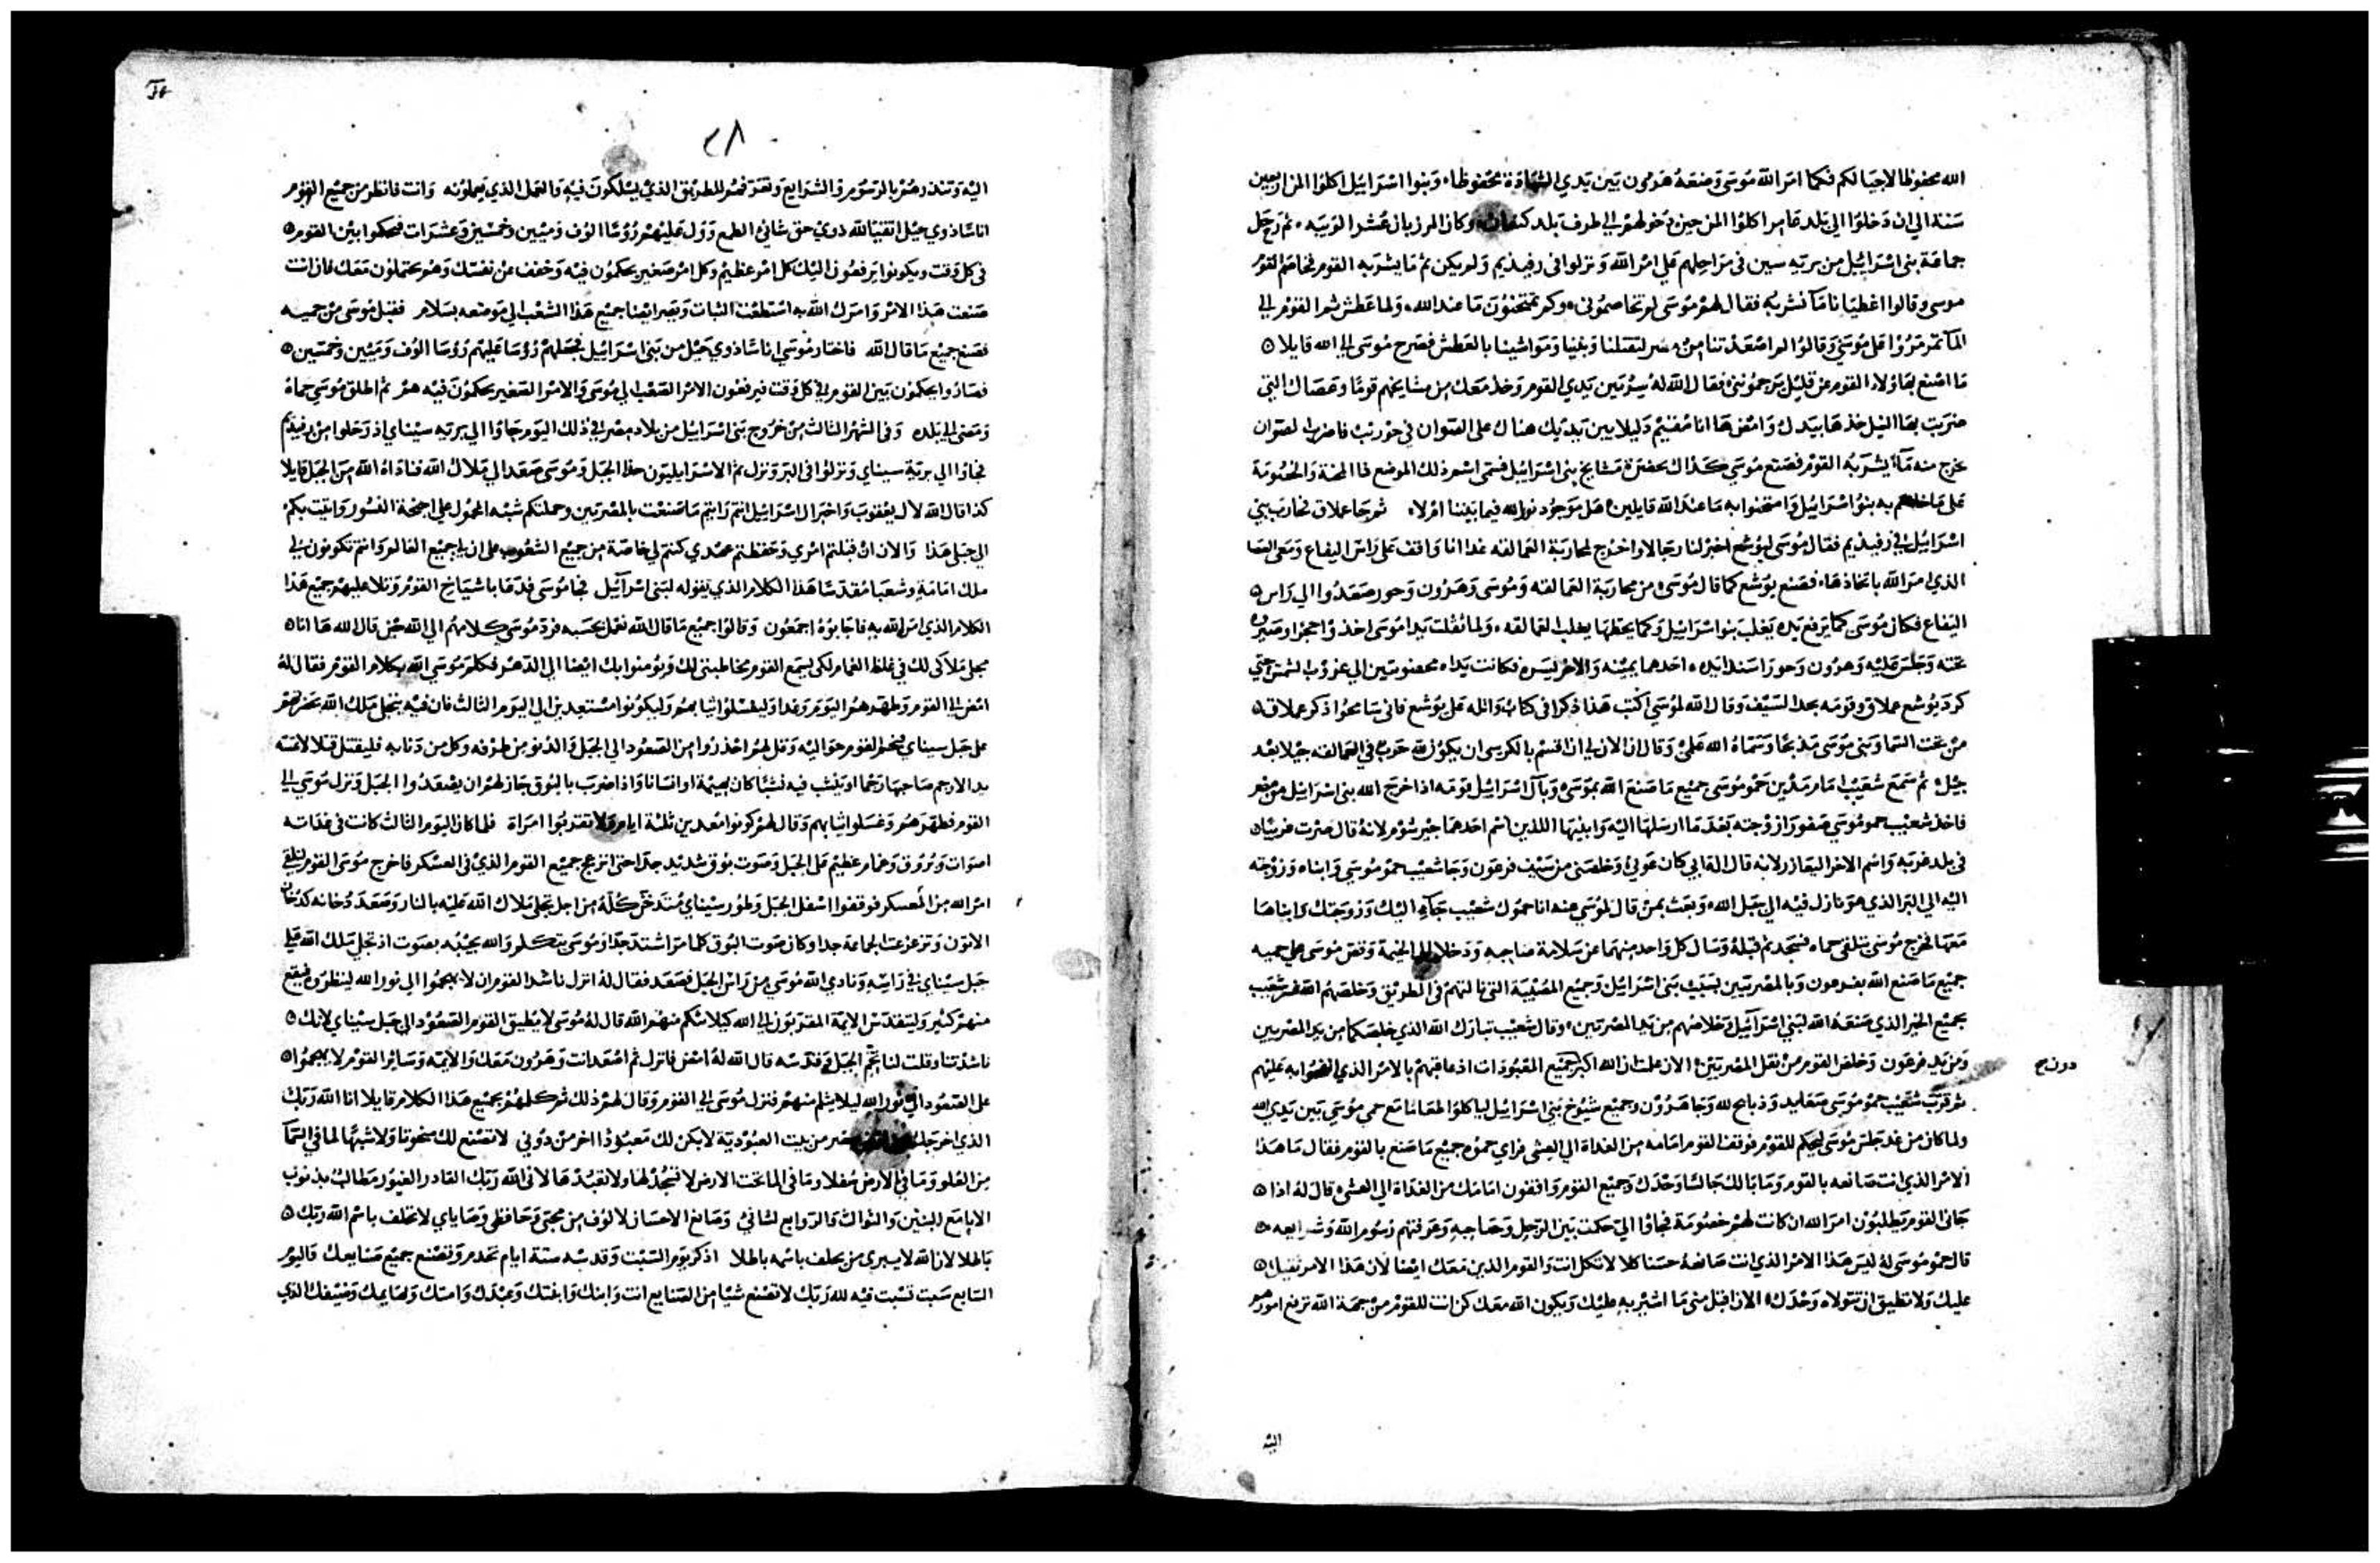 الله محفوظا لاجيالكم فكما امر الله موسى وضعه هرون بين يدي الشهادة محفوظا وبنوا اسراييل اكلوا المن اربعين
سنة الي ان دخلوا الي بلد عامر اكلوا المن حين دخولهم الي طرف بلد كنعان وكان المرزبان عشر الويبه ثم رحل
جماعة بني اسراييل من بريه سين في مراحلهم علي امر الله ونزلوا في رفيديم ولم يكن ثم ما يشربه القوم فخاصم القوم
موسى وقالوا اعطيانا مآ نشربه فقال لهم موسى لم تخاصموني وكم تمتحنون ما عند الله ولما عطش ثم القوم الي
المآ تمرمروا علي موسى وقالوا لم اصعدتنا من مصر لتقتلنا وبنينا ومواشينا بالعطش فصرح موسى الي الله قايلا
ما اصنع بهاولاء القوم عن قليل يرجموني فقال الله له سر بين يدي القوم وخذ معك من مشايخهم قوما وعصاك التي
ضربت بها النيل خذها بيدك وامض ها انا مقيم دليلا بين يديك هناك على الصوان في حوريب فاضرب الصوان
يخرج منه مآ يشربه القوم فصنع موسى كذاك بحضرة مشايخ بني اسراييل فسمى اسم ذلك الموضع ذا المحنة والخصومة
على ما خاصم به بنو اسراييل وامتحنوا به ما عند الله قايلين هل موجود نور الله فيما بيننا ام لا ثم جا عملاق فحارب بني
اسراييل في رفيديم فقال موسى ليوشع اختر لنا رجالا واخرج لمحاربة العمالقه غدا انا واقف على راس اليفاع ومعى العصا
الذي امر الله باتخاذها فصنع يوشع كما قال موسى من محاربة العمالقه وموسى وهرون وحور صعدوا الي راس
اليفاع فكان موسى كما يرفع يده يغلب بنو اسراييل وكما يحطها يغلب العمالقه ولما ثقلت يدا موسى اخذوا حجرا وصيروه
تحته وجلس عليه وهرون وحور اسندا يديه احدهما يمينه والاخر يسره فكانت يداه محضونتين الي غروب الشمس حتي
كرد يوشع عملاق وقومه بحد السيف وقال الله لموسي اكتب هذا ذكرا في كتاب واتله على يوشع فاني سامحوا ذكر عملاق
من تحت السما وبنى موسى مذبحا وسماه الله علمي وقال ان الان لي ان اقسم بالكرسى ان يكون لله حرب في العمالقه جيلا بعد
جيل ثم سمع شعيب امام مدين حمو موسى جميع ما صنع الله بموسى وبآل اسراييل قومه اذ اخرج الله بني اسراييل من مصر
فاخذ شعيب حمو موسى صفورا زوجته بعد ما ارسلها اليه وابنيها اللذين اسم احدهما جيرشوم لانه قال صرت غريبا
في بلد غربه واسم الاخر اليعازر لانه قال اله ابي كان عوني وخلصني من سيف فرعون وجا شعيب حمو موسي وابناه وزوجته
اليه الي البر الذي هو نازل فيه الي جبل الله وبعث بمن قال لموسي عنه انا حموك شعيب جآء اليك وزوجتك وابناها
معها فخرج موسى يتلقى حماه فسجد ثم قبله وسال كل واحد منهما عن سلامة صاحبه ودخلا الي الخيمة وقص موسى علي حميه
جميع ما صنع الله بفرعون وبالمصريين بسبب بني اسراييل وجميع المصيبة التي نالتهم في الطريق وخلصهم الله فسر شعيب
بجميع الخير الذي صنعه الله لبني اسرآييل وخلاصهم من يد المصريين وقال شعيب تبارك الله الذي خلصكم من يد المصريين
ومن يد فرعون وخلص القوم من ثقل المصريين الان علمت ان الله اكبر جميع المعبودات اذ عاقبهم بالامر الذي اقضوا به عليهم
دون ج
ثم قرب شعيب حمو موسى صعايد وذبايح لله وجا هرون وجميع شيوخ بني اسراييل لياكلوا طعاما مع حمي موسي بين يدي الله
ولما كان من غد جلس موسى ليحكم للقوم فوقف القوم امامه من الغداة الي العشي فراي حموه جميع ما صنع بالقوم فقال ما هذا
الامر الذي انت صانعه بالقوم وما بالك جالسا وحدك وجميع القوم واقفون امامك من الغداة الي العشي قال له اذا
جاني القوم يطلبون امر الله ان كانت لهم خصومة فجاوا الي حكمت بين الرجل وصاحبه وعرفتهم رسوم الله وشرايعه
قال حمو موسى له ليس هذا الامر الذي انت صانعه حسنا كلا لا تكل انت والقوم الذين معك ايضا لان هذا الامر ثقيل
عليك ولا تطيق ان تتولاه وحدك الان اقبل مني ما اشير به عليك ويكون الله معك كن انت للقوم من جهة الله ترفع امورهم
اليه
٢٨
اليه وتنذرهم بالرسوم والشرايع وتعرفهم الطريق الذي يسلكون فيه والعمل الذي يعملونه وانت فانظر من جميع القوم
اناسا ذوي حيل اتقيا لله ذوي حق شاني الطمع وول عليهم رؤسا الوف وميين وخمسين وعشرات فيحكموا بين القوم
في كل وقت ويكونوا يرفعون اليك كل امر عظيم وكل امر صغير يحكمون فيه وخفف عن نفسك وهم يحتملون معك فان انت
صنعت هذا الامر وامرك الله به استطعت الثبات ويصير ايضا جميع هذا الشعب الي موضعه بسلام فقبل موسى من حميه
فصنع جميع ما قال الله فاختار موسي اناسا ذوي حيل من بني اسراييل فجعلهم رؤسا عليهم رؤوسا الوف وميين وخمسين
فصاروا يحكمون بين القوم في كل وقت فيرفعون الامر الصعب الي موسى والامر الصغير يحكمون فيه هم ثم اطلق موسي حماه
ومضى الي بلده وفي الشهر الثالث من خروج بني اسراييل من بلاد مصر في ذلك اليوم جاوا الي بريه سيناي اذ رحلوا من رفيديم
فجاوا الي برية سيناي ونزلوا في البر ونزل ثم الاسراييليون حذا الجبل وموسى صعد الي ملاك الله فناداه الله من الجبل قايلا
كذا قال الله لال يعقوب واخبر ال اسراييل انتم رايتم ما صنعت بالمصريين وحملتكم شبه المحمول علي اجنحة النسور واتيت بكم
الي جبلي هذا والان ان قبلتم امري وحفظتم عهدي كنتم لي خاصة من جميع الشعوب علي ان لي جميع العالم وانتم تكونون لي
ملك امامة وشعبا مقدسا هذا الكلام الذي تقوله لبني اسرآييل فجا موسى فدعا باشياخ القوم وتلا عليهم جميع هذا
الكلام الذي امر الله به فاجابوه اجمعون وقالوا جميع ما قال الله نعمل بحسبه فرد موسى كلامهم الي الله حين قال الله ها انا
مجلي ملاكى لك في غلظ الغمام لكي يسمع القوم مخاطبتي لك ويؤمنوا بك ايضا الي الدهر فكلم موسي الله بكلام القوم فقال له
امض الي القوم وطهرهم اليوم وغدا وليغسلوا ثيابهم وليكونوا مستعدين الي اليوم الثالث فان فيه يتجلى ملك الله بحضرتهم
على جبل سيناي فتخم للقوم حواليه وقل لهم احذروا من الصعود الي الجبل والدنو من طرفه وكل من دنا به فليقتل قتلا لا تمسه
يد الا رجم صاحبها رجما او ينشب فيه نشابا كان بهيمة او انسانا واذا ضرب بالبوق جاز لهم ان يصعدوا الجبل ونزل موسي الي
القوم فطهرهم وغسلوا ثيابهم وقال لهم كونوا معدين ثلثة ايام ولا تقربوا امراة فلما كان اليوم الثالث كانت في غداته
اصوات وبروق وغمام عظيم على الجبل وصوت بوق شديد جدا حتى انزعج جميع القوم الذي في العسكر فاخرج موسى القوم لتلقي
امر الله من المعسكر فوقفوا اسفل الجبل وطور سيناي مدخن كله من اجل تجلي ملاك الله عليه بالنار وصعد دخانه كدخان
الاتون وتزعزعت الجماعة جدا وكان صوت البوق كلما مر اشتد جدا وموسى يتكلم والله يجيبه بصوت اذ تجلى ملك الله علي
جبل سيناي في راسه ونادي الله موسي من راس الجبل فصعد فقال له انزل ناشد القوم ان لا يهجموا الي نور الله لينظروه فيقع
منهم كثير وليتقدس الايمة المقربون الي الله كيلا يثلم منهم الله قال له موسى لا يطيق القوم الصعود الي جبل سيناي لانك
ناشدتنا وقلت لنا تخم الجبل وقدسه قال الله له امض فانزل ثم اصعد انت وهرون معك والايمه وساير القوم لا يهجموا
على الصعود الي نور الله ليلا يثلم منهم فنزل موسى الي القوم وقال لهم ذلك ثم كلمهم بجميع هذا الكلام قايلا انا الله ربك
الذي اخرجك من مصر من بيت العبودية لا يكن لك معبودا اخر من دوني لا تصنع لك منحوتا ولا شبها لما في السمآ
من العلو وما في الارض سفلا وما في الما تحت الارض لا تسجد لها ولا تعبدها لاني الله ربك القادر الغيور مطالب بذنوب
الابا مع البنين والثوالث والروابع لشاني وصانع الاحسان لالوف من محبي وحافظي وصاياي لا تحلف باسم الله ربك
باطلا لان الله لا يبرى من يحلف باسمه باطلا اذكر يوم السبت وقدسه ستة ايام تخدم وتصنع جميع صنايعك واليوم
السابع سبت تسبت فيه لله ربك لا تصنع شيا من الصنايع انت وابنك وابنتك وعبدك وامتك وبهايمك وضيفك الذي